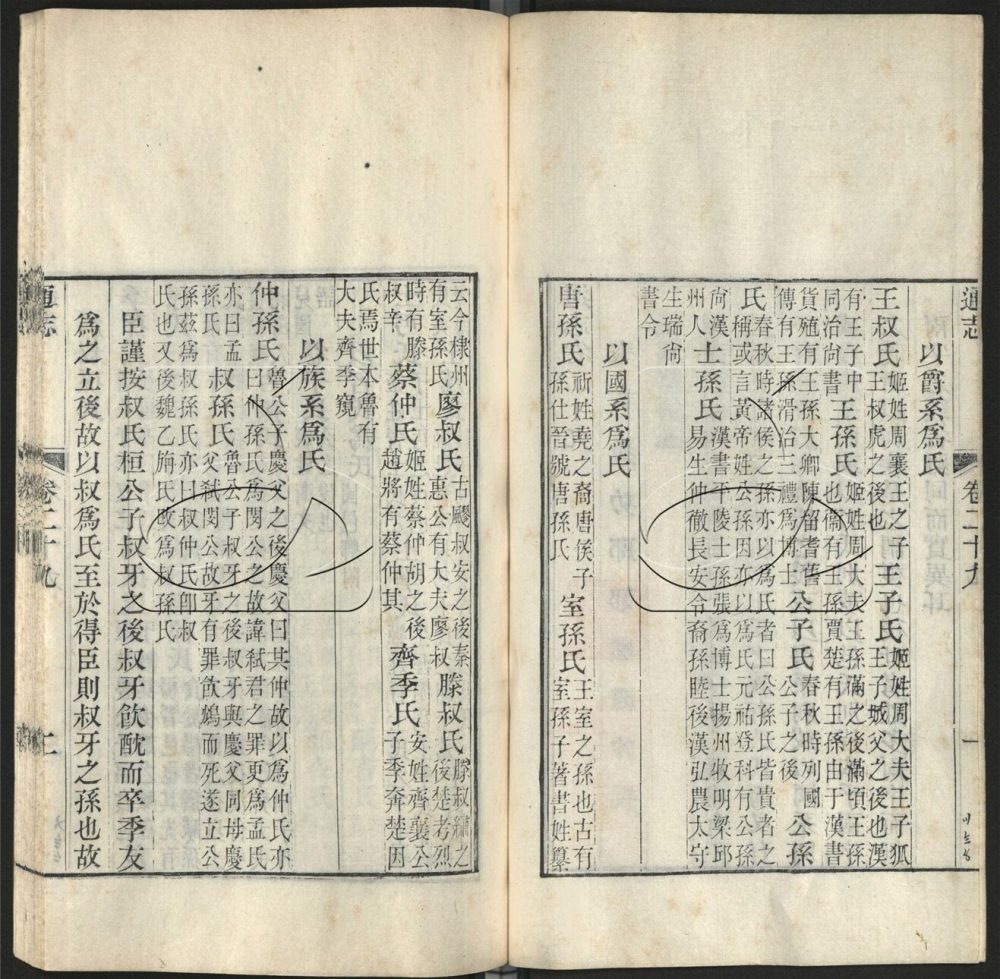 通志 卷二十九 一
以爵系爲氏
王叔氏姬姓周襄王之子王叔虎之後也王子氏姬姓周大夫王子狐王子城父之後也漢
有王子中同治尚書王孫氏姬姓周大夫王孫滿之後滿頃王孫也衞有王孫賈楚有王孫由于漢書
貨殖有王孫大卿陳留耆舊傳有王孫滑治三禮爲博士公子氏春秋時列國公子之後公孫
氏春秋時諸侯之孫亦以爲氏者曰公孫氏皆貴者之稱或言黃帝姓公孫因亦以爲氏元祐登科有公孫
尙漢州人士孫氏漢書平陵士孫張爲博士揚州牧明梁邱易生仲徹長安令裔孫睦後漢弘農太守
生瑞尙書令
以國系爲氏
唐孫氏祈姓堯之裔唐侯子孫仕晉號唐孫氏室孫氏王室之孫也古有室孫子著書姓纂
云今棣州有室孫氏廖叔氏古飂叔安之後秦惠公有大夫廖叔滕叔氏滕叔繡之後楚考烈
時有滕叔辛蔡仲氏姬姓蔡仲胡之後趙將有蔡仲其齊季氏安姓齊襄公子季奔楚因
氏焉世本魯有大夫齊季窺
以族系爲氏
仲孫氏魯公子慶父之後慶父曰其仲故以爲仲氏亦曰仲孫氏爲閔公之故諱弒君之罪更爲孟氏
亦曰孟孫氏叔孫氏魯公子叔牙之後叔牙與慶父同母慶父弒閔公故牙有罪飮鴆而死遂立公
孫茲爲叔孫氏亦曰叔仲氏卽叔氏也又後魏乙旃氏改爲叔孫氏
臣謹按叔氏桓公子叔牙之後叔牙飮酖而卒季友
爲之立後故以叔爲氏至於得臣則叔牙之孫也故
通志 卷二十九 二